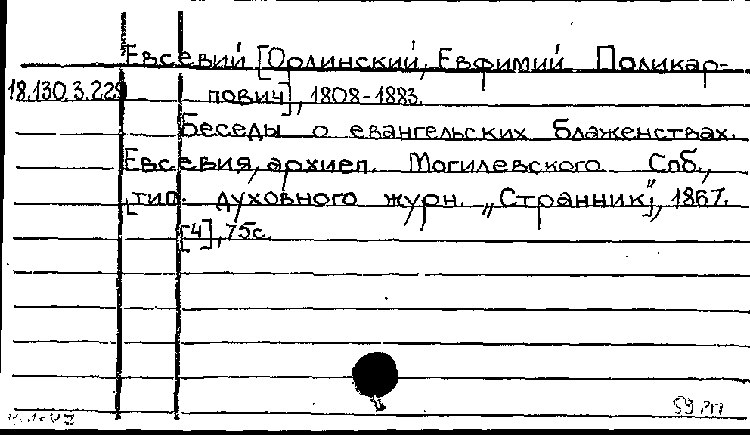 Евсевий [Орлинский, Евфимий Поликар-
18.130.3.229 пович], 1808-1883.
Беседы о евангельских блаженствах.
Евсевия, архиеп. Могилевского. Спб.,
[тип. духовного журн. „Странник"], 1867.
[4], 75с.